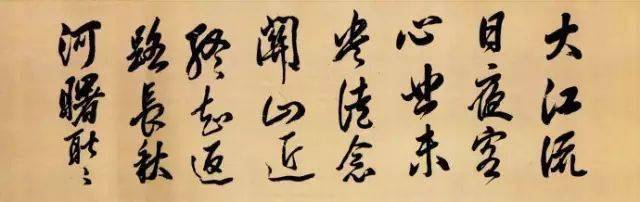 大江流
日夜客
心悲未
央徒念
關山近
終知返
路長秋
河曙耿〻